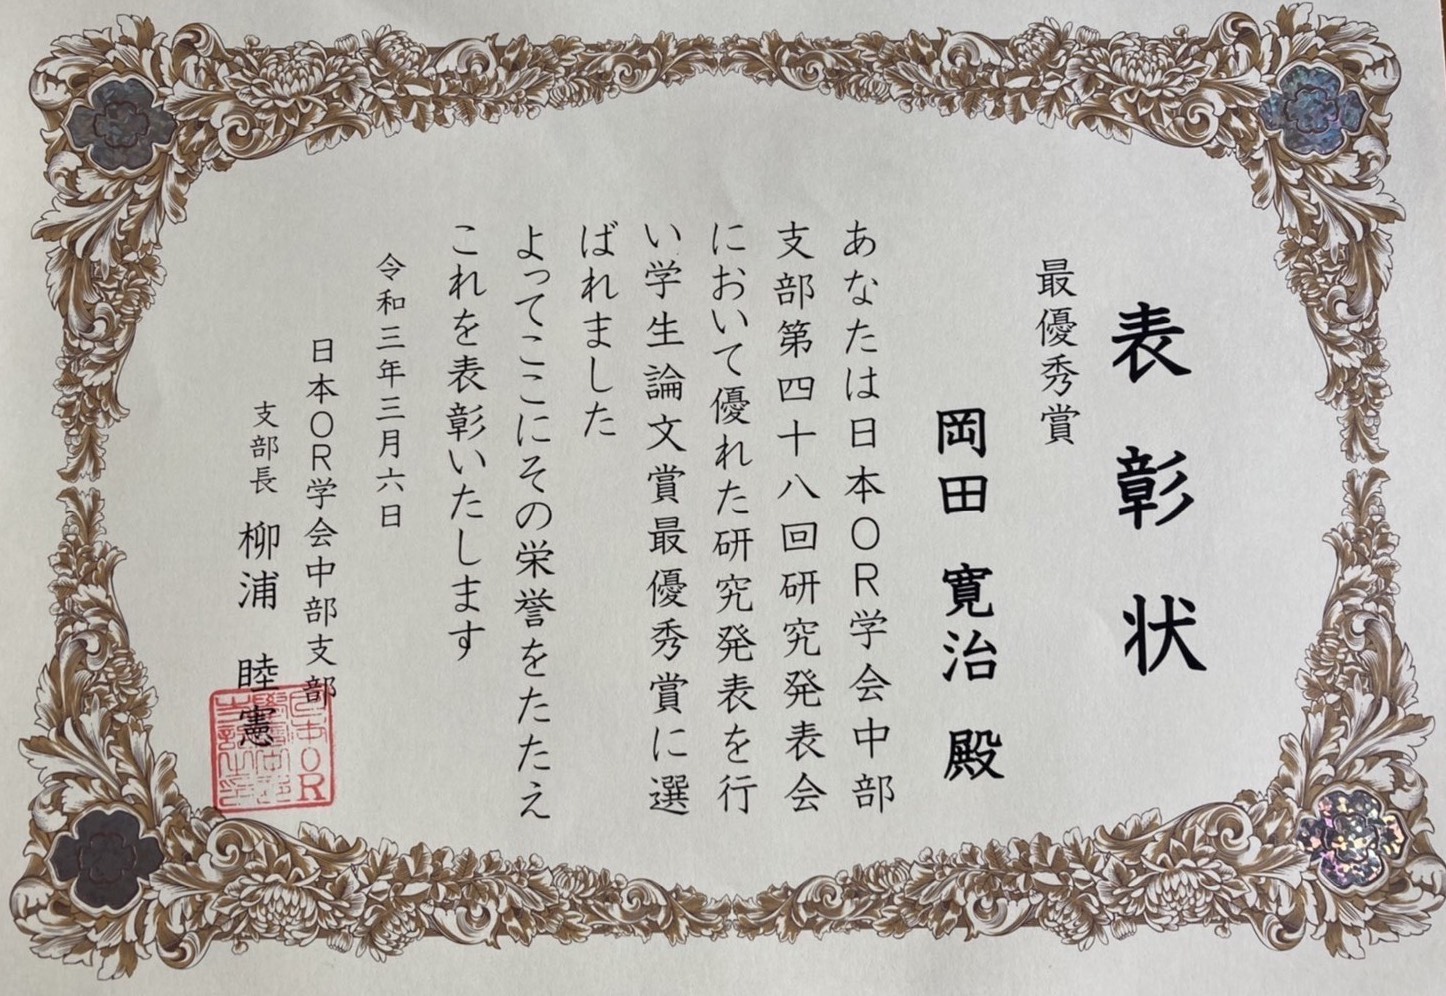 表彰状
最優秀賞
岡田 寛治 殿
あなたは日本OR学会中部
支部第四十八回研究発表会
において優れた研究発表を行
い学生論文賞最優秀賞に選
ばれました
よってここにその栄誉をたたえ
これを表彰いたします
令和三年三月六日
日本OR学会中部支部
支部長 柳浦 睦憲